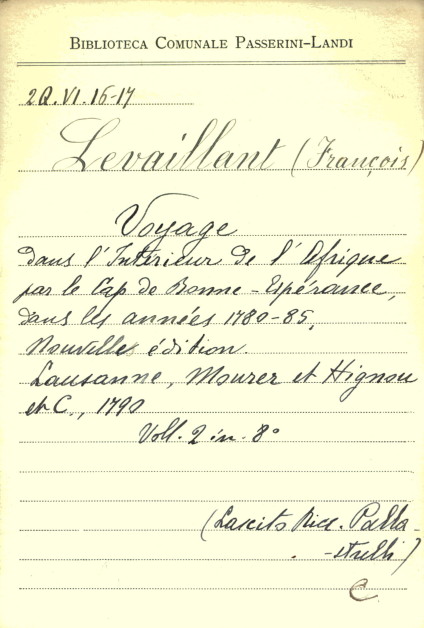 BIBLIOTECA COMUNALE PASSERINI-LANDI
2Q.VI.16-17
Levaillant (François)
Voyage
dans l'Intérieur de l'Afrique
par le Cap de Bonne-Espérance,
dans les années 1780-85,
Nouvelles édition.
Lausanne, Mourer et Hignou
et C., 1790
Voll. 2 in-8°
(Lascito Ricc. Palla-
-strelli)
C